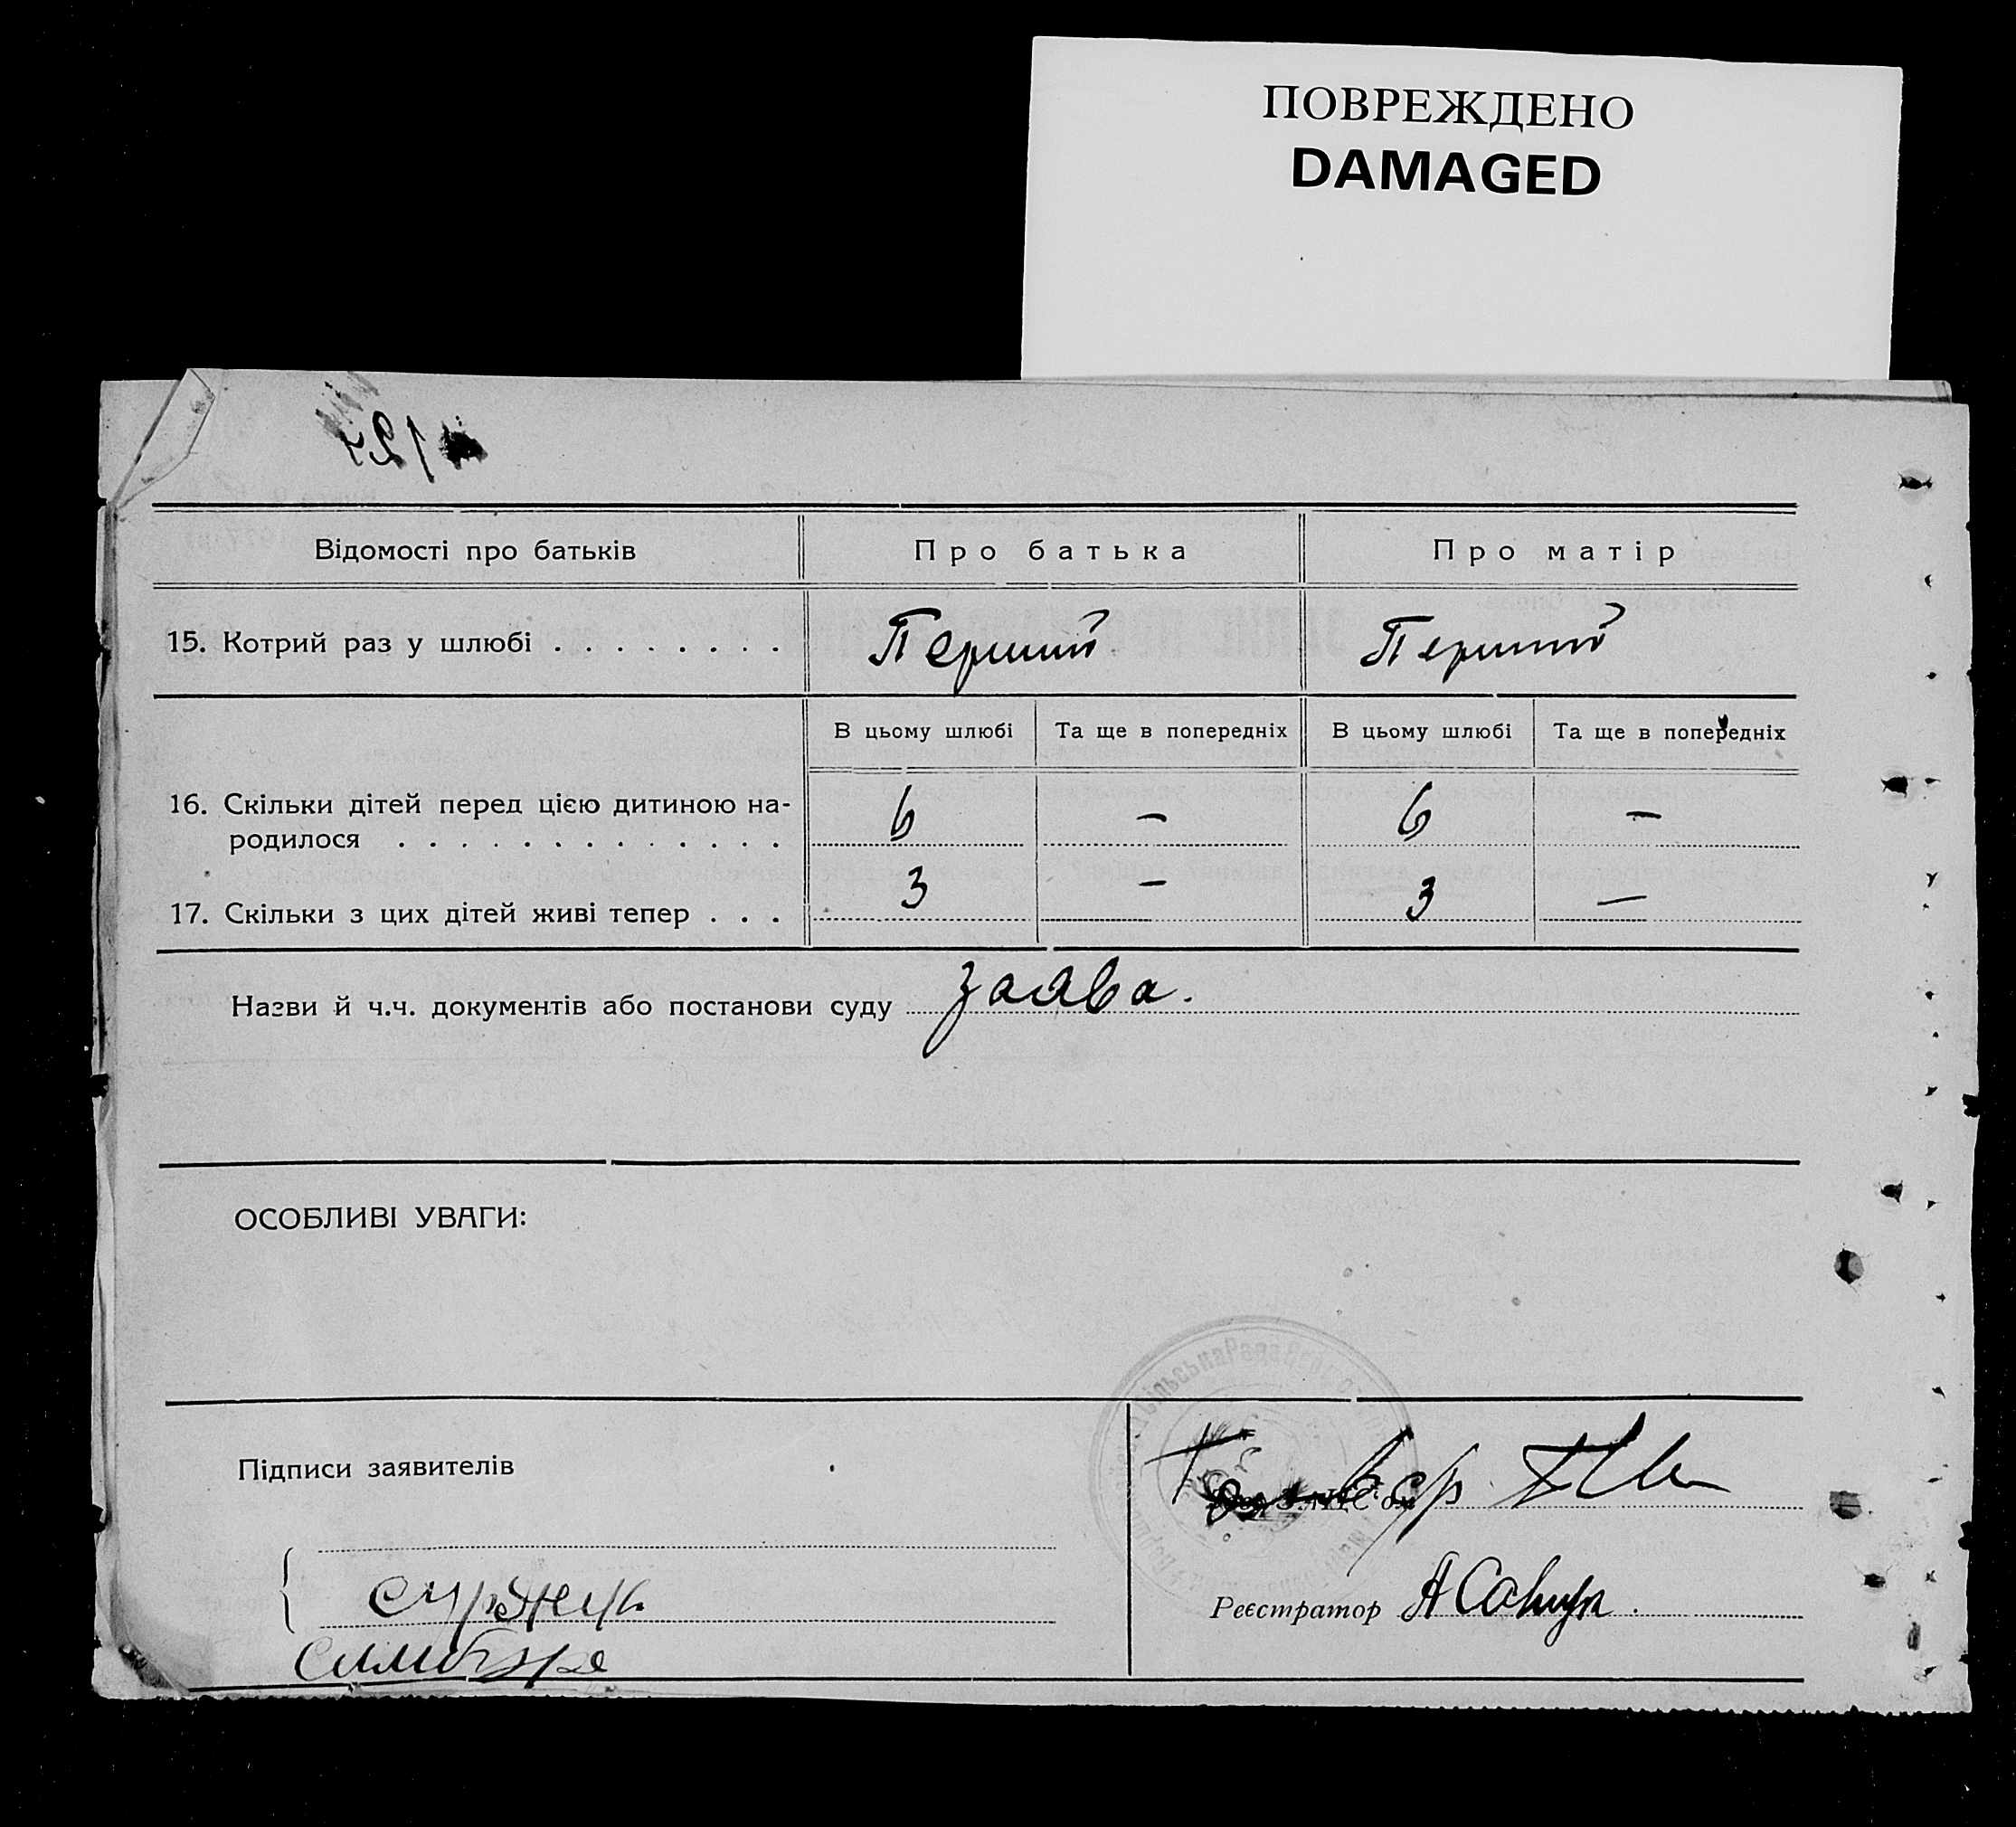 ПОВРЕЖДЕНО
DAMAGED
Відомості про батьків
Про батька
Про матір
15. Котрий раз у шлюбі . . . . . . . .
Перший
Перший
В цьому шлюбі
Та ще в попередніх
В цьому шлюбі
Та ще в попередніх
16. Скільки дітей перед цією дитиною на-
родилося . . . . . . . . . . . . .
6
—
6
—
17. Скільки з цих дітей живі тепер . . .
3
—
3
—
Назви й ч.ч. документів або постанови суду заява.
ОСОБЛИВІ УВАГИ:
Підписи заявителів
Реєстратор